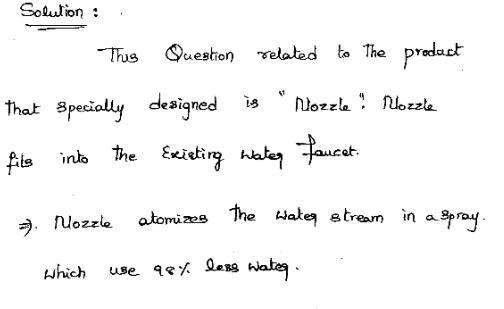 Solution :
This Question related to The product
that specially designed is "Nozzle". Nozzle
fits into the Existing water faucet.
⇒. Nozzle atomizes the water stream in a spray.
which use 98% less water.